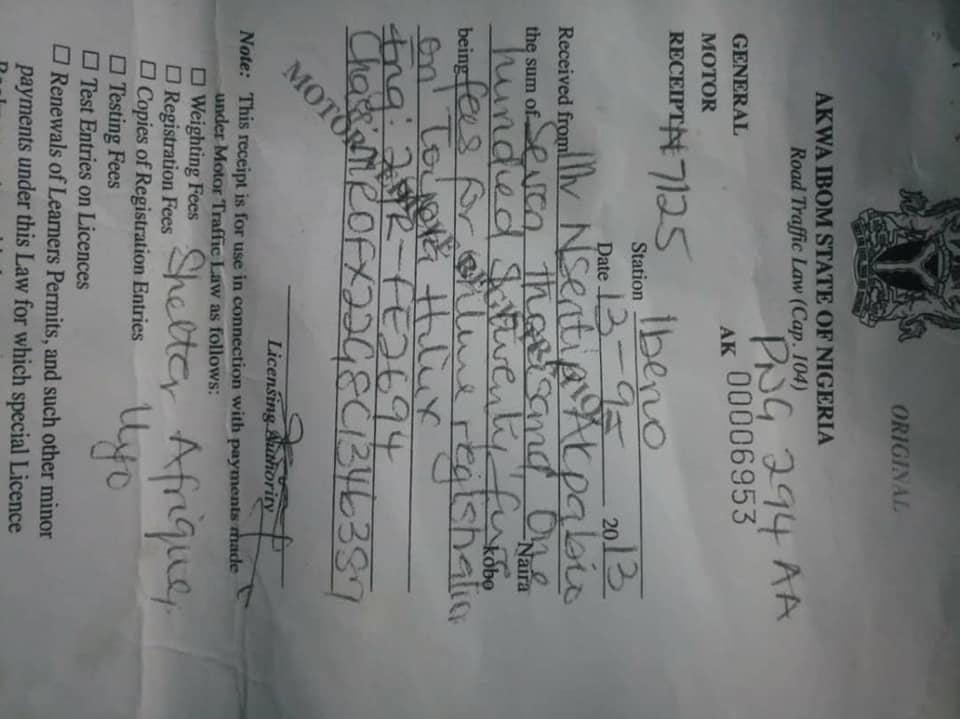 ORIGINAL
AKWA IBOM STATE OF NIGERIA
Road Traffic Law (Cap. 104)
PNG 294 AA
GENERAL
AK 00006953
MOTOR
RECEIPT ₦7125
Station Ibeno
Date 13-9 2013
Received from Mr Akpabio
the sum of Seven thousand One Naira
hundred & twenty five kobo
being fees for registration
on Toyota Hilux
Eng:
MOTOR
Licensing Authority
Note: This receipt is for use in connection with payments made
under Motor Traffic Law as follows:
☐ Weighting Fees
☐ Registration Fees Shelter Afrique,
☐ Copies of Registration Entries Uyo
☐ Testing Fees
☐ Test Entries on Licences
☐ Renewals of Learners Permits, and such other minor
payments under this Law for which special Licence